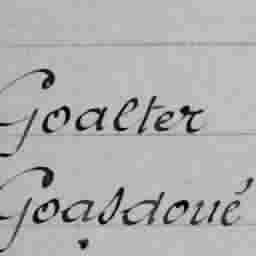 Goalter
Goasdoué